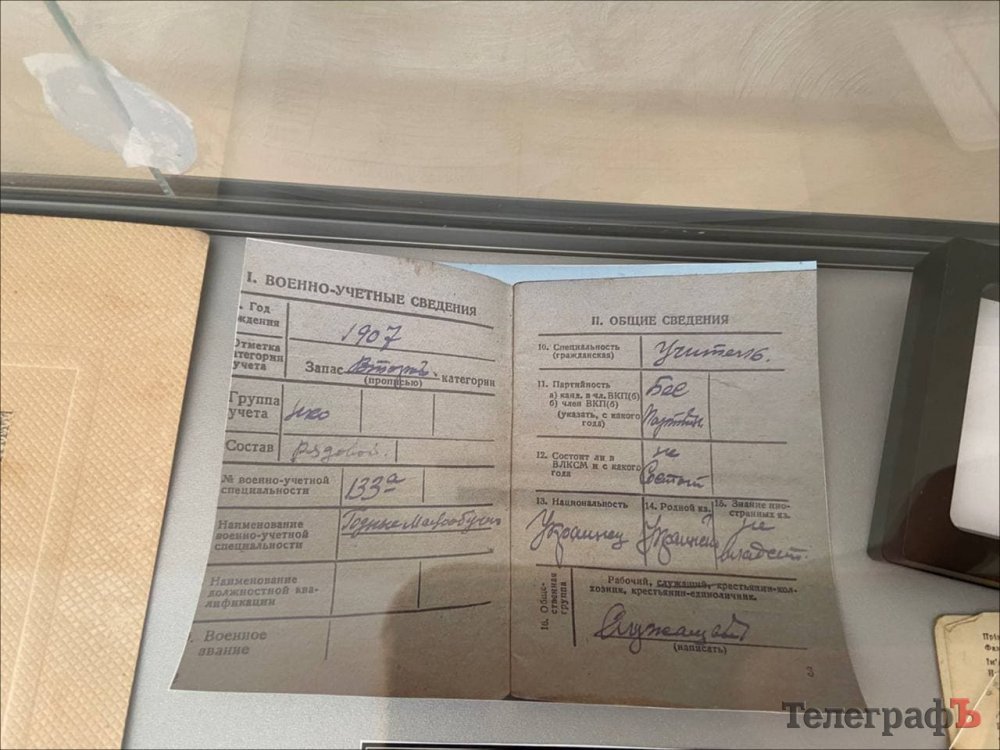 I. ВОЕННО-УЧЕТНЫЕ СВЕДЕНИЯ
Год
ждения
1907
Отметка
категории
учета
Запас Второй категории
(прописью)
Группа
учета
нко
Состав
Рядовой
№ военно-учетной
специальности
133а
Наименование
военно-учетной
специальности
Годные
Наименование
должностной ква-
лификации
Военное
звание
II. ОБЩИЕ СВЕДЕНИЯ
10. Специальность
(гражданская)
Учитель.
11. Партийность
а) канд. в чл. ВКП(б)
б) член ВКП(б)
(указать, с какого
года)
Бес
партийн
12. Состоит ли в
ВЛКСМ и с какого
года
не
Состоит
13. Национальность
Украинец
14. Родной яз.
15. Знание ино-
странных яз.
не
владеет.
16. Обще-
ственная
группа
Рабочий, служащий, крестьянин-кол-
хозник, крестьянин-единоличник.
Служащий
(написать)
3
ТелеграфЪ